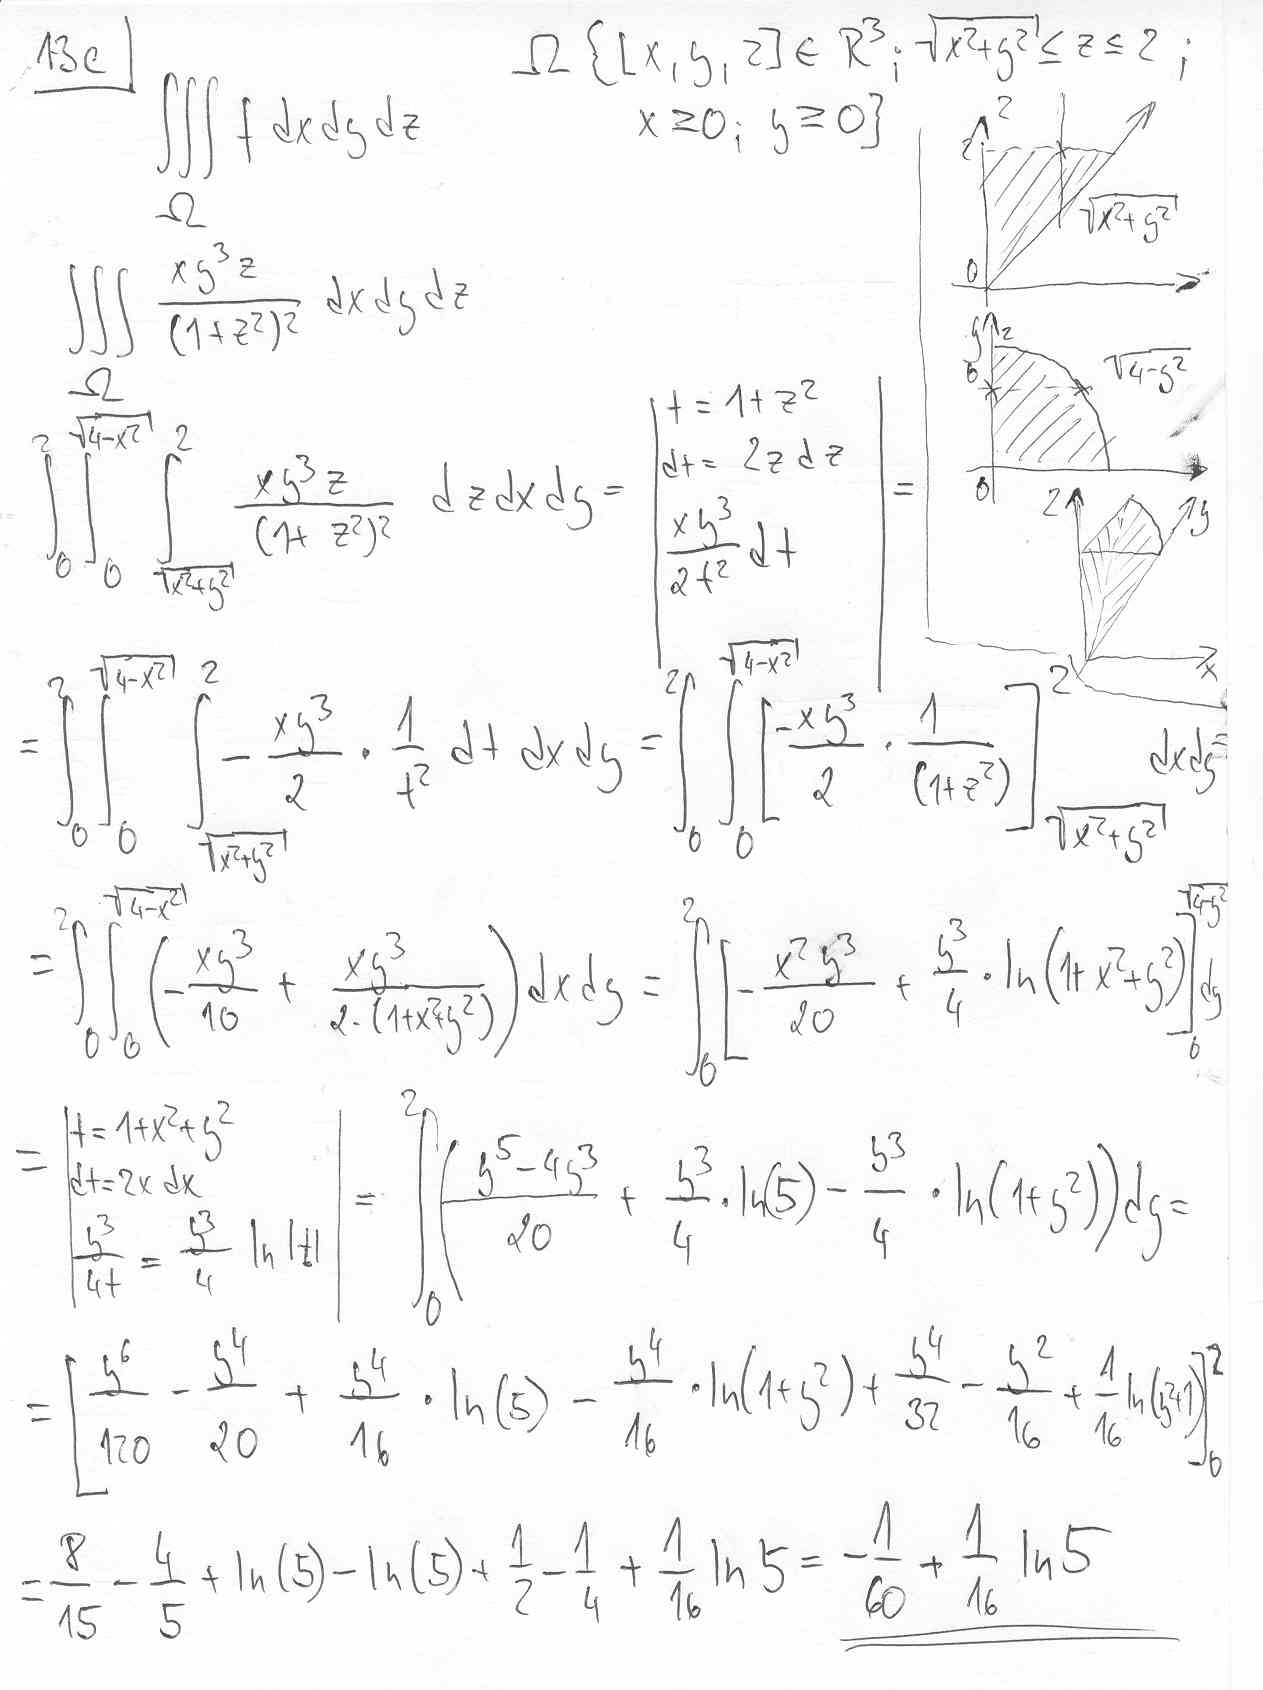 13c
Ω {[x, y, z] ∈ R³; √(x²+y²) ≤ z ≤ 2 ;
∭_Ω f dx dy dz
x ≥ 0; y ≥ 0}
z
2
√(x²+y²)
0
∭_Ω xy³z/(1+z²)² dx dy dz
y
2
6
√(4-y²)
0
∫_0^2 ∫_0^√(4-x²) ∫_√(x²+y²)^2 xy³z/(1+z²)² dz dx dy = | t = 1+z²
dt = 2z dz
xy³/2t² dt | =
z
y
x
= ∫_0^2 ∫_0^√(4-x²) ∫_√(x²+y²)^2 - xy³/2 · 1/t² dt dx dy = ∫_0^2 ∫_0^√(4-x²) [-xy³/2 · 1/(1+z²)]_√(x²+y²)^2 dx dy =
= ∫_0^2 ∫_0^√(4-x²) (- xy³/10 + xy³/2·(1+x²+y²)) dx dy = ∫_0^2 [- x²y³/20 + y³/4 · ln(1+x²+y²)]_0^√(4-y²) dy
= | t = 1+x²+y²
dt = 2x dx
y³/4t = y³/4 ln|t| | = ∫_0^2 (y⁵-4y³/20 + y³/4 · ln(5) - y³/4 · ln(1+y²)) dy =
= [y⁶/120 - y⁴/20 + y⁴/16 · ln(5) - y⁴/16 · ln(1+y²) + y⁴/32 - y²/16 + 1/16 ln(y²+1)]_0^2
= 8/15 - 4/5 + ln(5) - ln(5) + 1/2 - 1/4 + 1/16 ln 5 = -1/60 + 1/16 ln 5